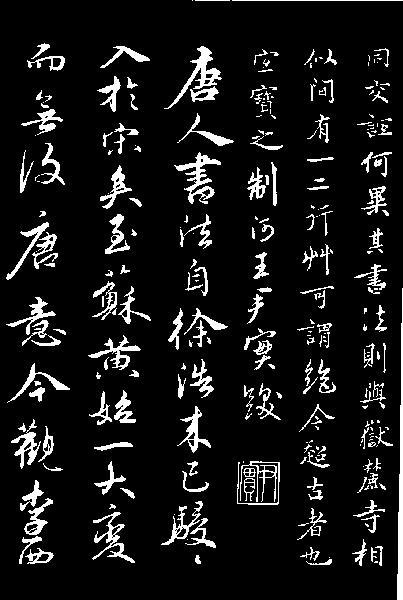 同文何異其書法則與嶽麓寺相
似間有一二行艸可謂絶今超古者也
宜寶之制河王尹實跋
唐人書法自徐浩末已駸〻
入於宋矣至蘇黃始一大變
而無復唐意今觀李西
尹實